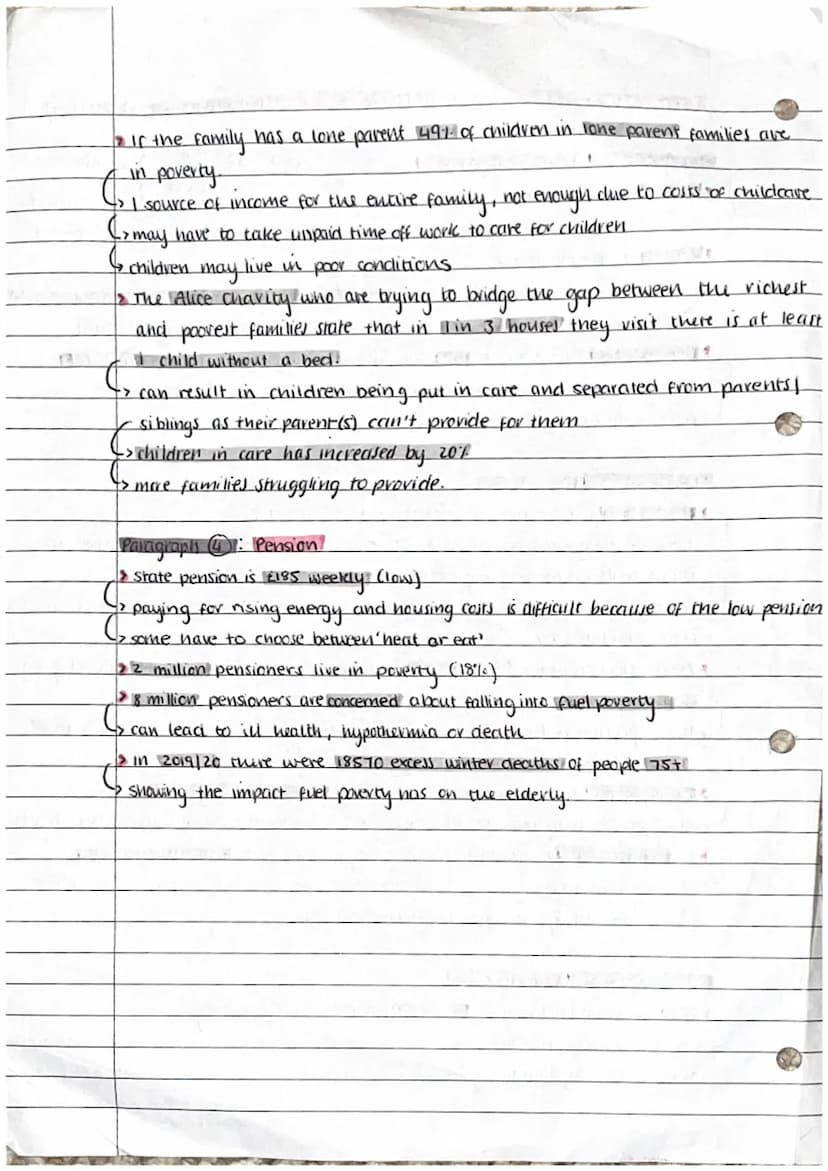 If the family has a lone parent 49% of children in lone parent families are
in poverty.
↳ 1 source of income for the entire family, not enough due to costs of childcare
↳ may have to take unpaid time off work to care for children
↳ children may live in poor conditions
The Alice Charity who are trying to bridge the gap between the richest
and poorest families state that in 1 in 3 houses they visit there is at least
1 child without a bed.
↳ can result in children being put in care and separated from parents/
siblings as their parent(s) can't provide for them
↳ children in care has increased by 20%
↳ more families struggling to provide.
Paragraph ④: Pension
State pension is £185 weekly (low)
↳ paying for rising energy and housing costs is difficult because of the low pension
↳ some have to choose between 'heat or eat'
2 million pensioners live in poverty (18%)
8 million pensioners are concerned about falling into fuel poverty
↳ can lead to ill health, hypothermia or death
In 2019/20 there were 18570 excess winter deaths of people 75+
↳ showing the impact fuel poverty has on the elderly.